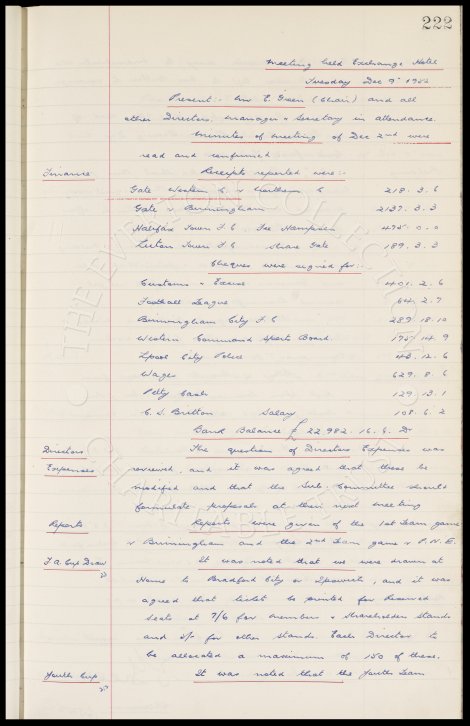 222
Meeting held Exchange Hotel
Tuesday Dec 9th 1952
Present:- Mr E. Green (Chair) and all
other Directors, Manager & Secretary in attendance.
Minutes of meeting of Dec 2nd were
read and confirmed
Finance Receipts reported were:-
Gate Western C. v Northern C 218. 3. 6
Gate v Birmingham 2137. 3. 3
Halifax Town F.C. Fee Hampson 475. 0. 0
Luton Town F.C. Share Gate 189. 3. 3
Cheques were signed for:-
Customs & Excise 401. 2. 6
Football League 64. 2. 7
Birmingham City F.C 289. 18. 10
Western Command Sports Board. 175. 14. 9
Lpool City Police 43. 12. 6
Wages 629. 8. 6
Petty Cash 129. 13. 1
C. S. Britton Salary 108. 6. 2
Bank Balance £ 22,982. 16. 6. Dr
Directors The question of Directors Expenses was
Expenses reviewed, and it was agreed that these be
modified and that the Sub. Committee should
formulate proposals at their next meeting
Reports Reports were given of the 1st Team game
v Birmingham and the 2nd Team game v P.N.E.
F.A. Cup Draw It was noted that we were drawn at
Home to Bradford City or Ipswich, and it was
agreed that tickets be printed for Reserved
Seats at 7/6 for members & Shareholders Stands
and 5/- for other stands. Each Director to
be allocated a maximum of 150 of these.
Youth Cup It was noted that the Youth Team
THE EVERTON COLLECTION
CHARITABLE TRUST